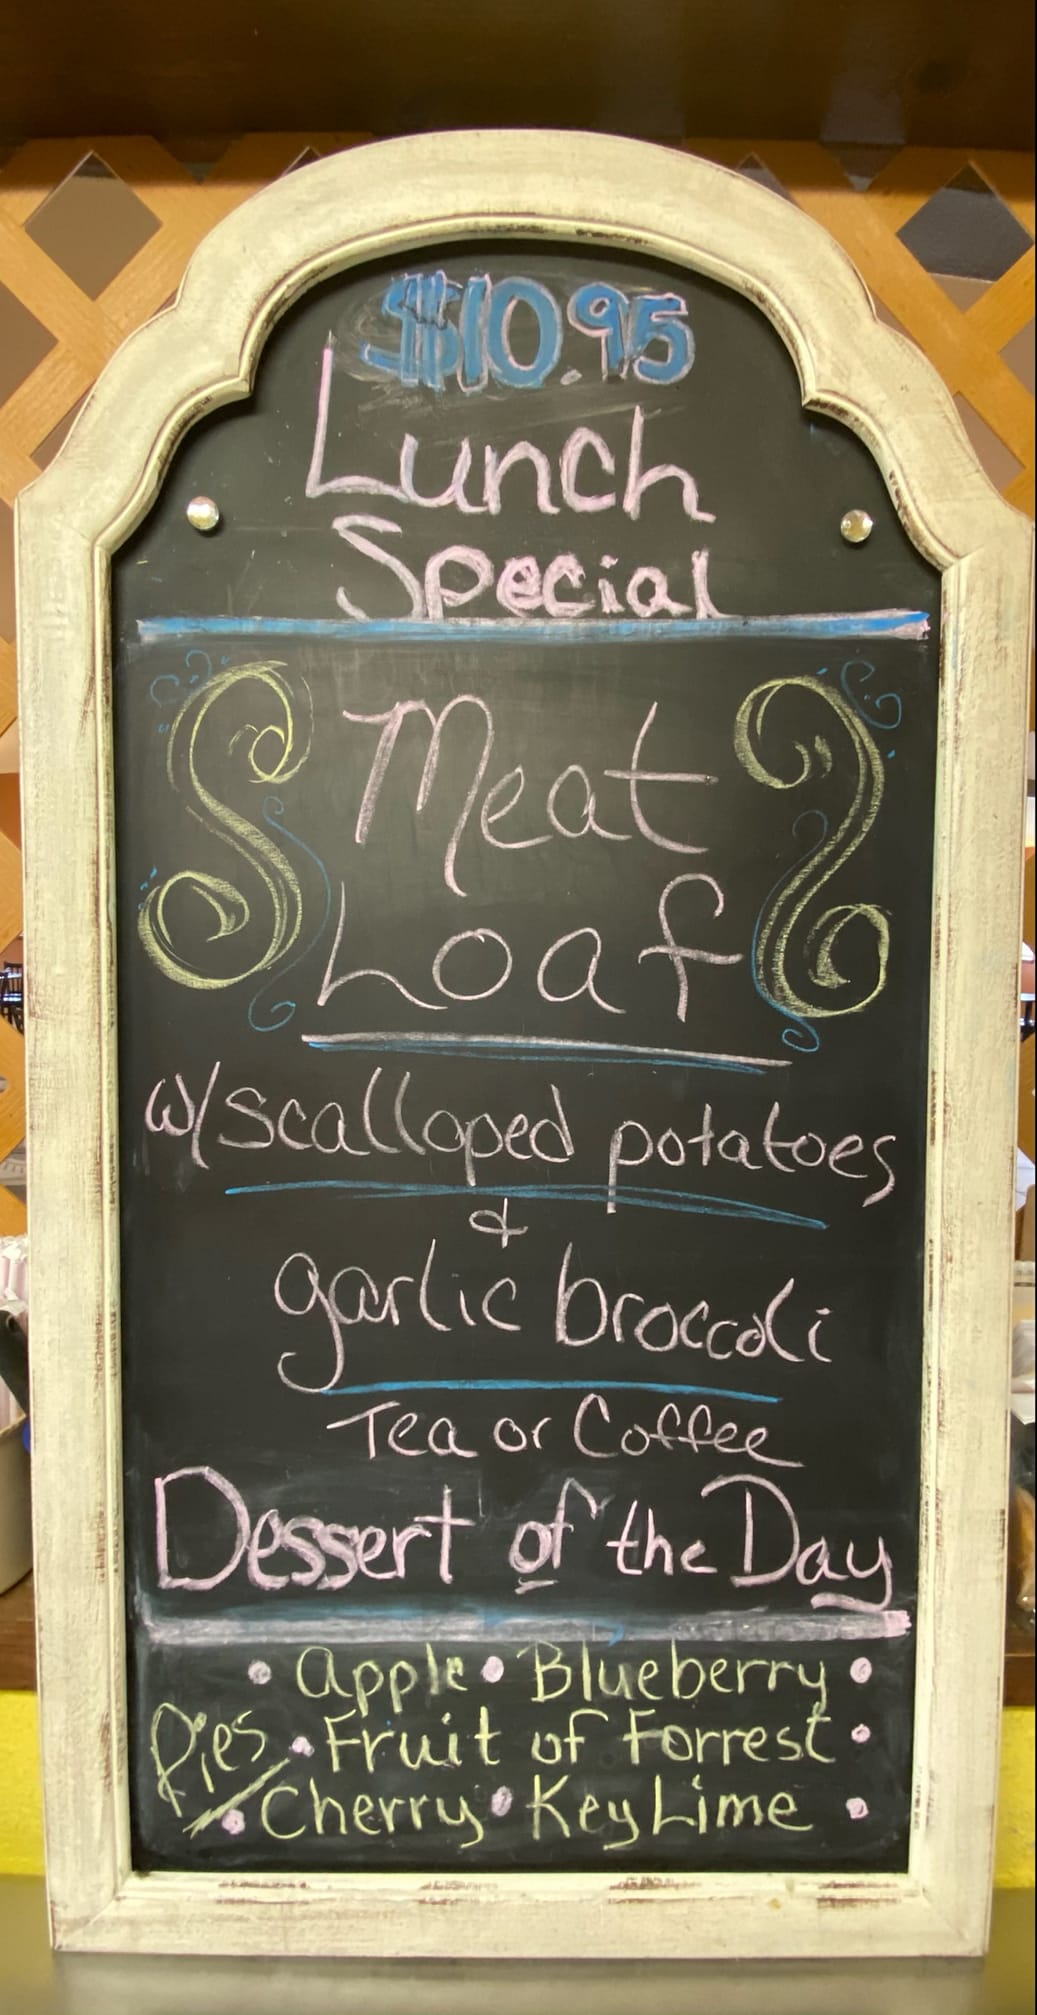 $10.95
Lunch
Special
Meat
Loaf
w/scalloped potatoes
&
garlic broccoli
Tea or Coffee
Dessert of the Day
• Apple • Blueberry •
Pies • Fruit of Forrest •
• Cherry • Key Lime •